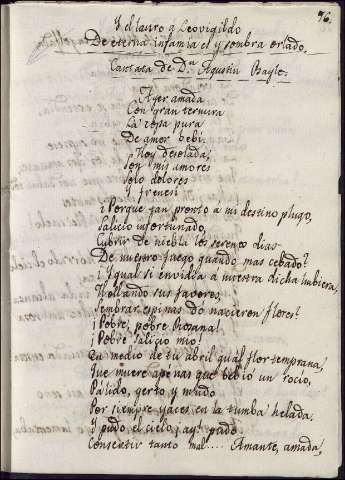 76.
Y el lauro a Leovigildo
De eterna infamia el y sombra orlado.
Cantata de D.n Agustin Bayle.
Ayer amada
Con gran ternura
La copa pura
De amor bebi.
¡Hoy desolada,
Son mis amores
Solo dolores
Y frenesi
¡Porque tan pronto á mi destino plugo,
Salicio infortunado,
Cubrir de niebla los serenos dias
De nuestro fuego quando mas cebado?
¡Igual si envidia a nuestra dicha hubiera,
Hollando sus favores,
Sembrar espinas do nacieron flores!
¡Pobre, pobre Rosana!
¡Pobre Salicio mio!
En medio de tu abril qual flor temprana,
Que muere apénas que bebió un rocio,
Pálido, yerto y mudo
Por siempre yaces en la tumba helada.
Y pudo el cielo ¡ay! pudo
Consentir tanto mal.... Amante, amada,